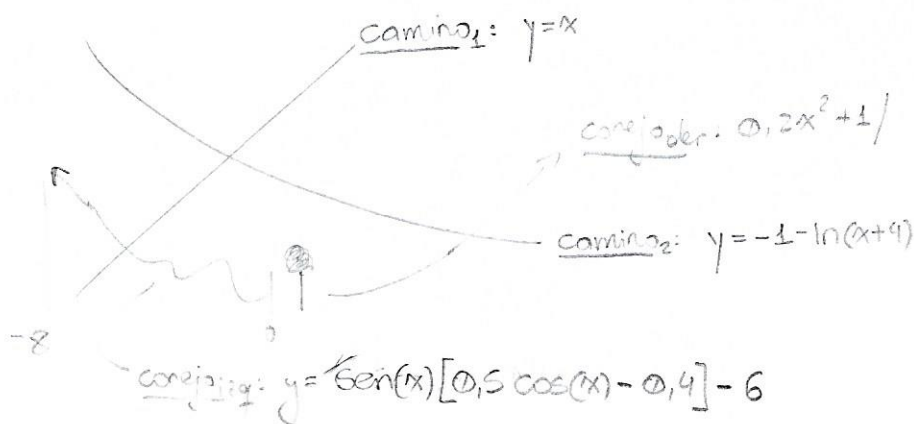 camino1: y=x
conejoder: 0,2x²+1/
camino2: y=-1-ln(x+4)
-8
0
conejoizq: y= sen(x)[0,5 cos(x)-0,4]-6